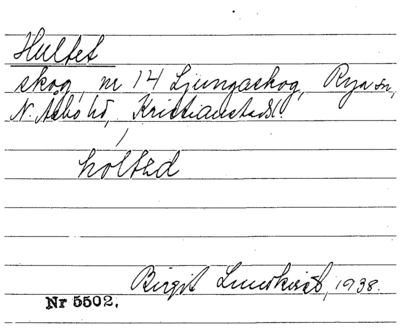 Hultet
skog, nr 14 Ljungaskog, Rya sn,
N. Åsbo hd, Kristianstads l.
holtəd
Birgit Lundkvist, 1938.
Nr 5502.